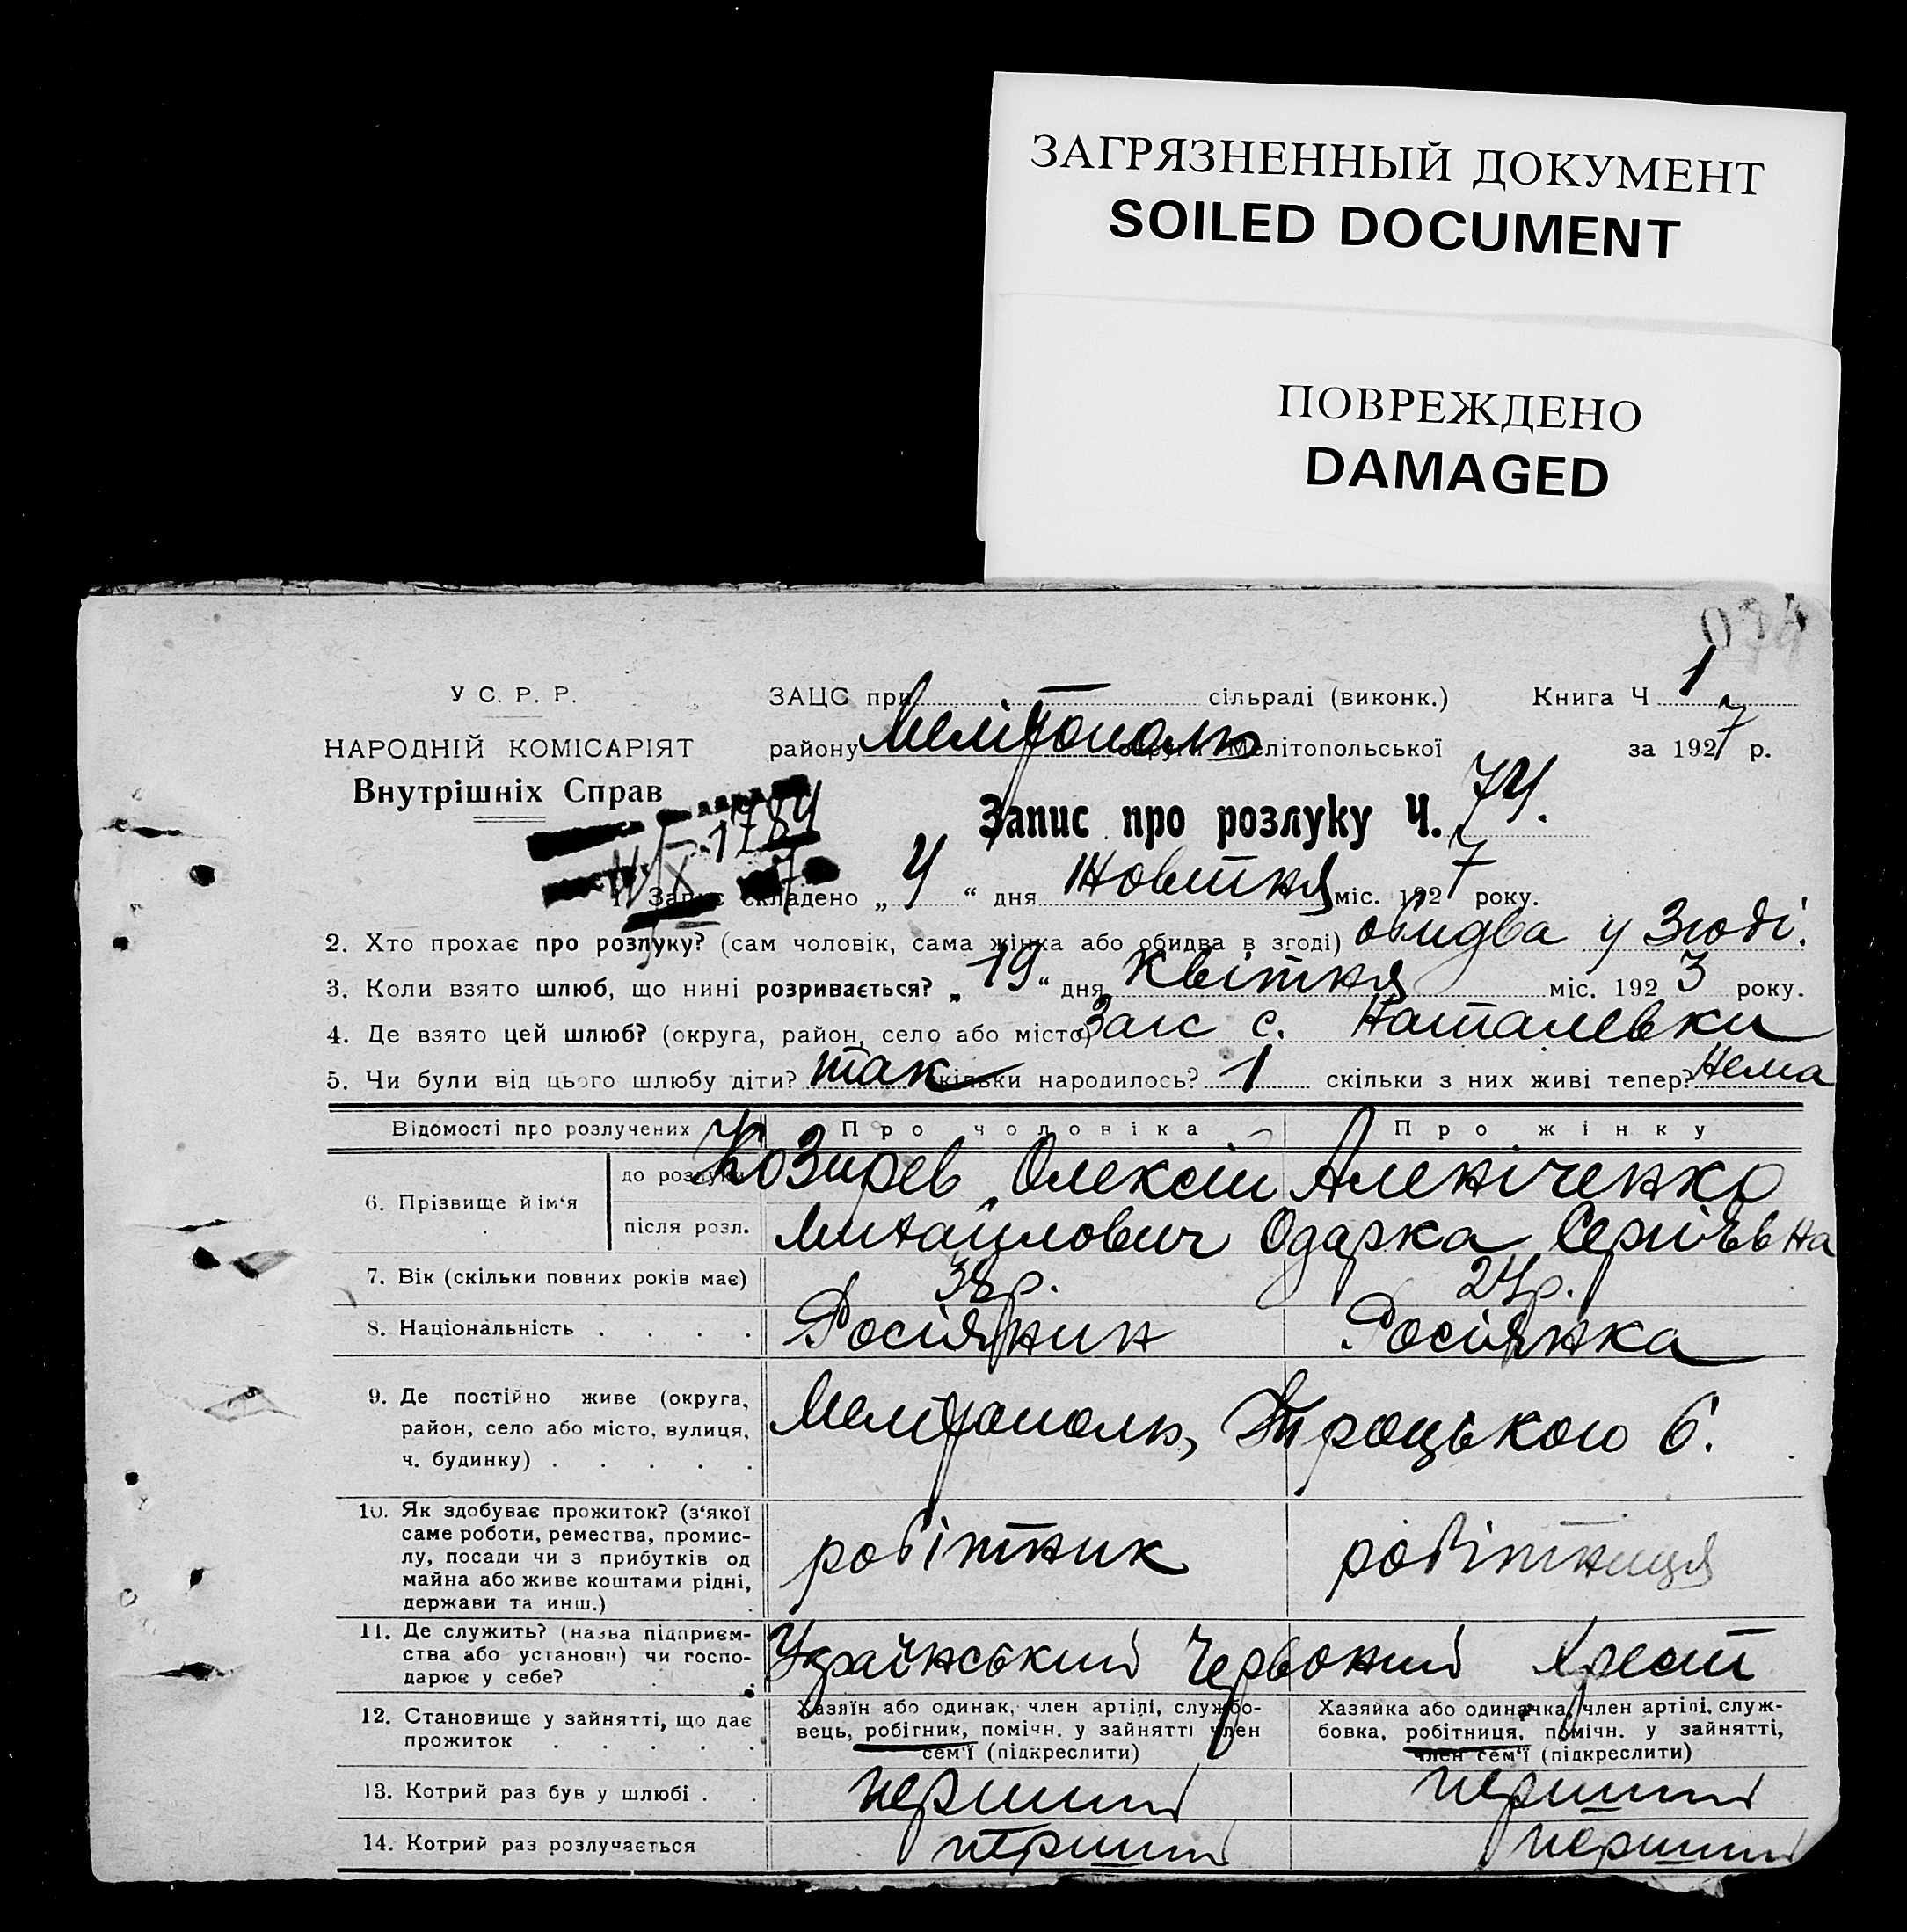 ЗАГРЯЗНЕННЫЙ ДОКУМЕНТ
SOILED DOCUMENT
ПОВРЕЖДЕНО
DAMAGED
У С. Р. Р.
ЗАЦС при сільраді (виконк.) Книга Ч 1
НАРОДНІЙ КОМІСАРІЯТ
району Мелітополь округи Мелітопольської за 1927 р.
Внутрішніх Справ
Запис про розлуку Ч. 74.
1. Запис складено „ 4 “ дня Жовтня міс. 1927 року.
2. Хто прохає про розлуку? (сам чоловік, сама жінка або обидва в згоді) обидва у Згоді.
3. Коли взято шлюб, що нині розривається? „ 19 “ дня Квітня міс. 1923 року.
4. Де взято цей шлюб? (округа, район, село або місто) Загс с. Наталевки
5. Чи були від цього шлюбу діти? так скільки народилось? 1 скільки з них живі тепер? Нема
Відомості про розлучених Про чоловіка Про жінку
6. Прізвище й ім‘я
до розлуки Козирев Олексій Аленіченко
після розл. Михайлович Одарка Сергіївна
7. Вік (скільки повних років має) 38р. 24р.
8. Національність . . . . Росіянин Росіянка
9. Де постійно живе (округа,
район, село або місто, вулиця,
ч. будинку) . . . . .
Мелітополь, Троцького 6.
10. Як здобуває прожиток? (з‘якої
саме роботи, ремества, промис-
лу, посади чи з прибутків од
майна або живе коштами рідні,
держави та инш.)
робітник робітниця
11. Де служить? (назва підприєм-
ства або установи) чи госпо-
дарює у себе?
Український Червоний Хрест
12. Становище у зайнятті, що дає
прожиток . . . . .
Хазяїн або одинак, член артілі, службо-
вець, робітник, помічн. у зайнятті член
сем‘ї (підкреслити)
Хазяйка або одиначка, член артілі, служ-
бовка, робітниця, помічн. у зайнятті,
член сем‘ї (підкреслити)
13. Котрий раз був у шлюбі . . перший перший
14. Котрий раз розлучається перший перший